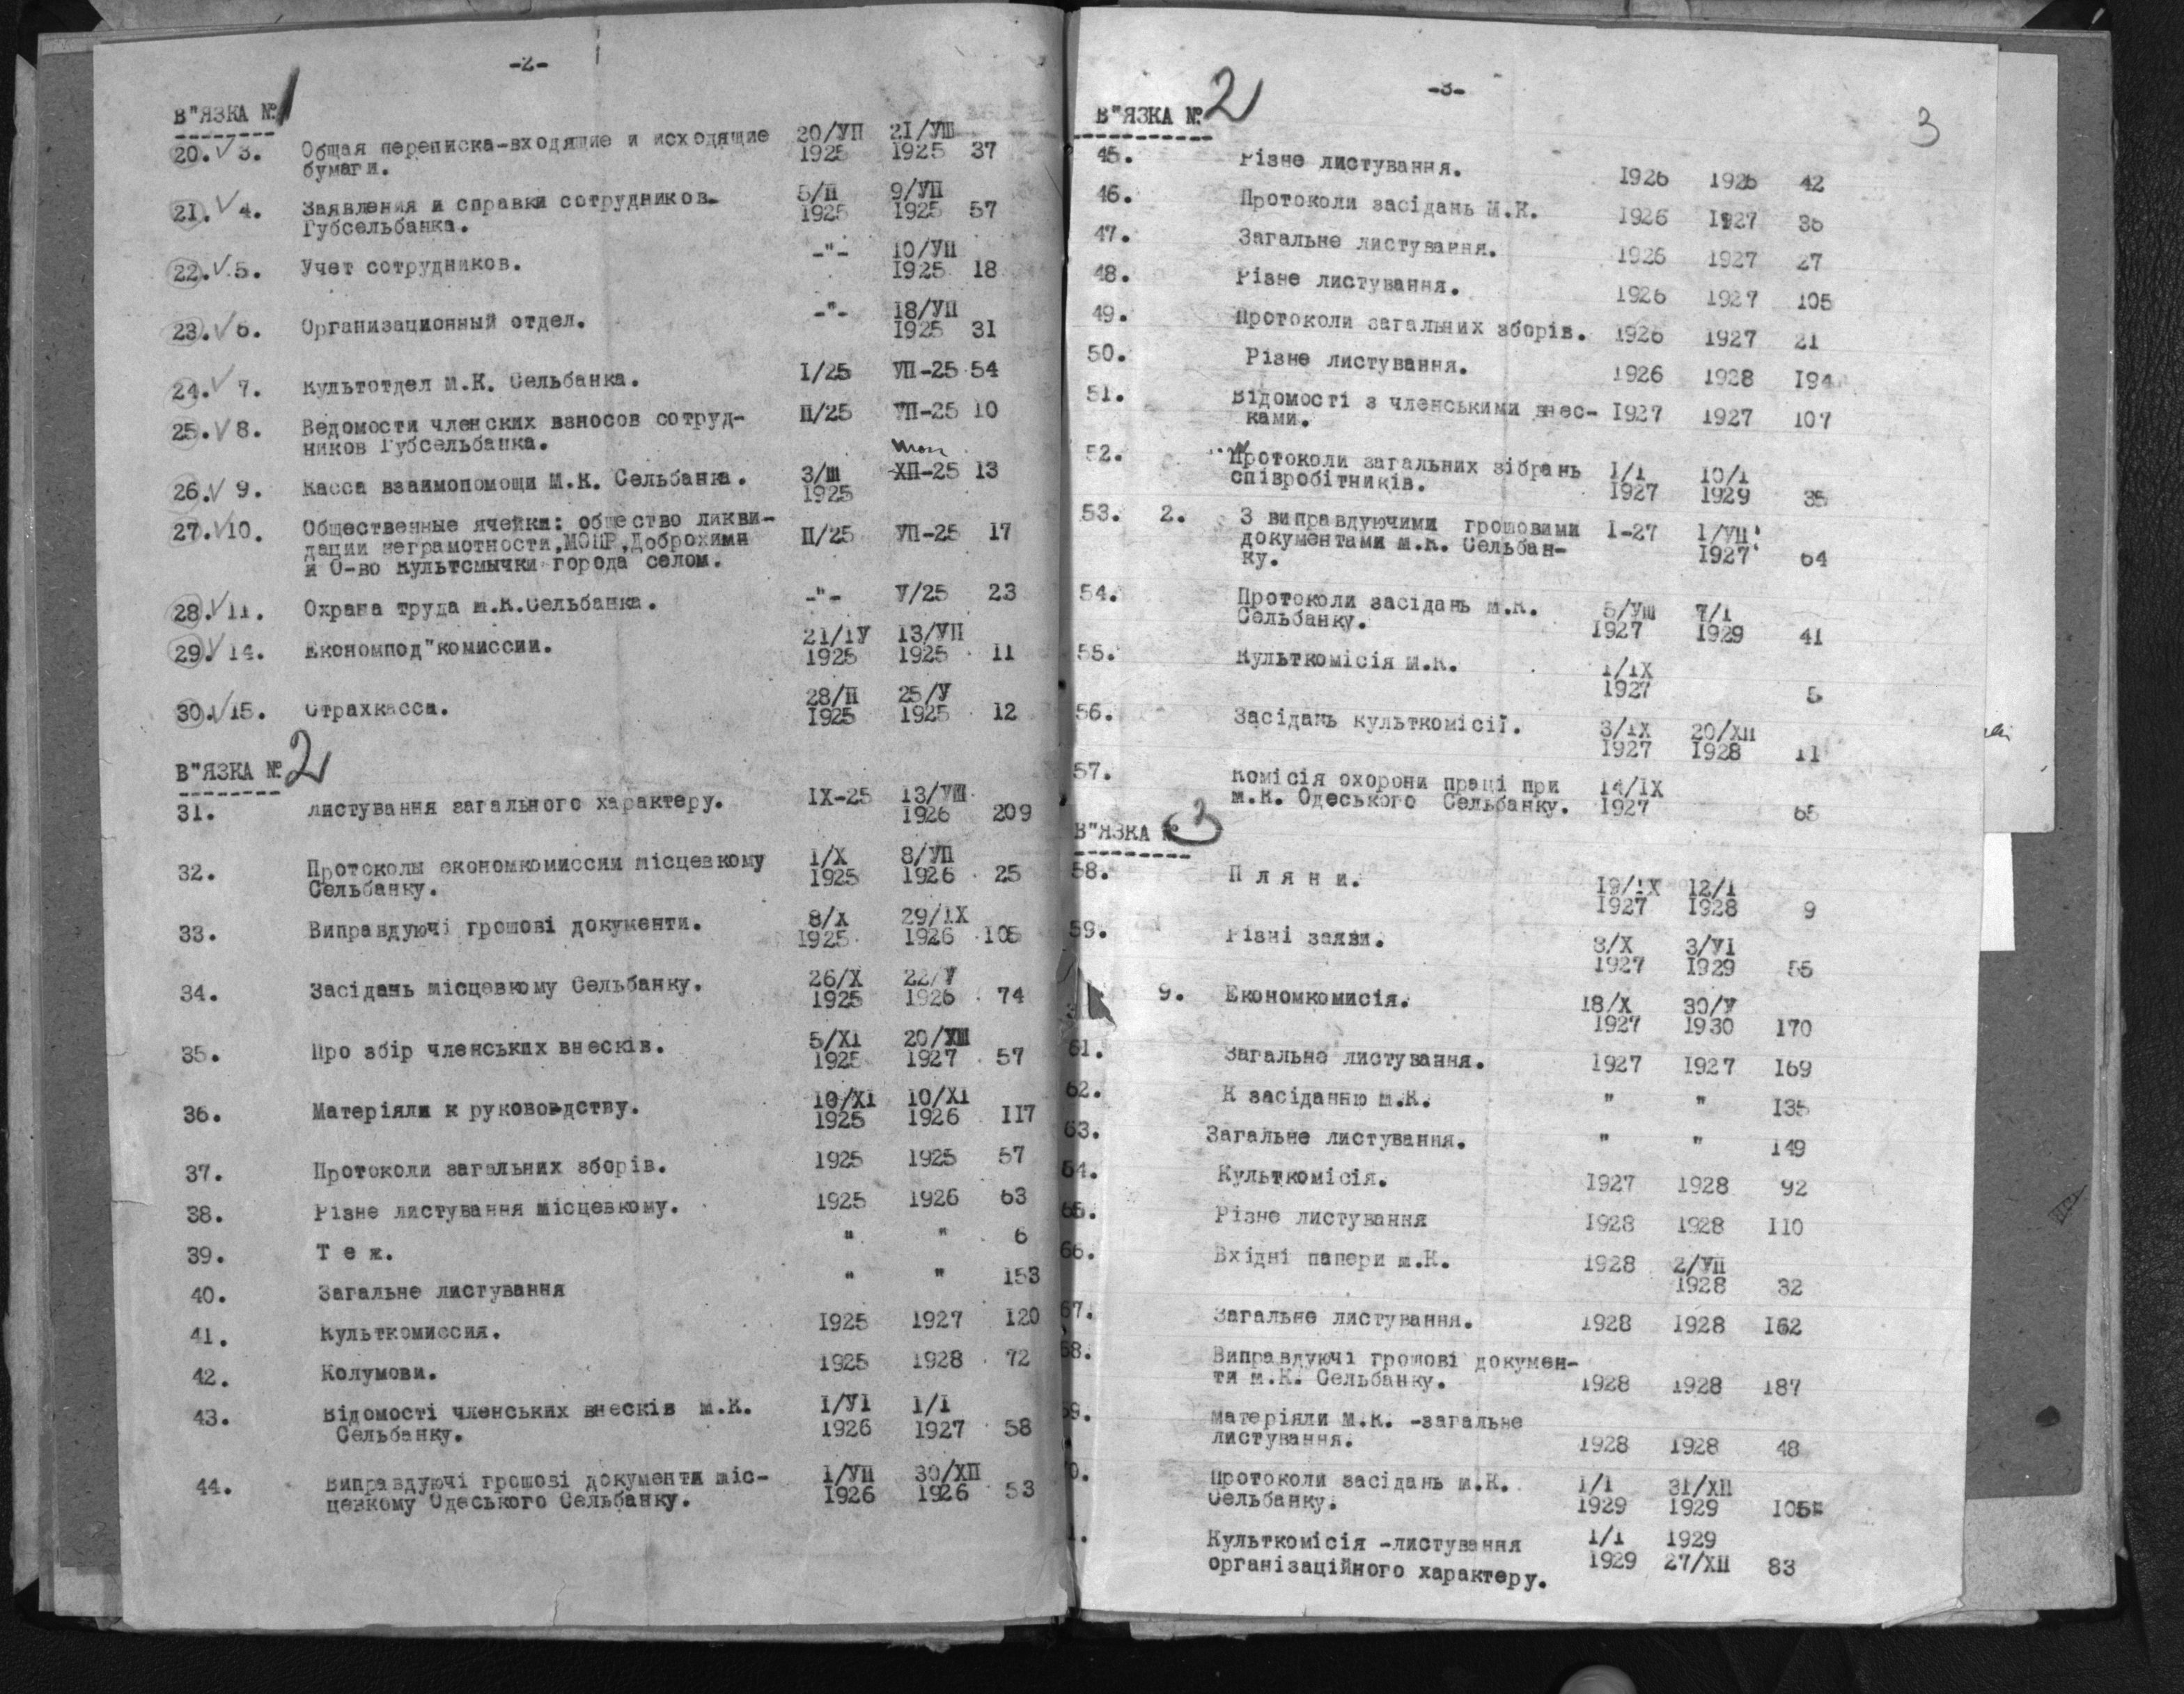 -2-
В"ЯЗКА № 1
20. V 3. Общая переписка-входящие и исходящие 20/УП 21/УШ
бумаги. 1925 1925 37
21. V 4. Заявления и справки сотрудников 5/П 9/УП
Губсельбанка. 1925 1925 57
22. V 5. Учет сотрудников. -"- 10/УП
1925 18
23. V 6. Организационный отдел. -"- 18/УП
1925 31
24. V 7. Культотдел М.К. Сельбанка. I/25 УП-25 54
25. V 8. Ведомости членских взносов сотруд- П/25 УП-25 10
ников Губсельбанка.
26. V 9. Касса взаимопомощи М.К. Сельбанка. 3/Ш ХП-25 13
1925
27. V 10. Общественные ячейки: общество ликви-
дации неграмотности, МОПР, Доброхими П/25 УП-25 17
и О-во Культсмычки города селом.
28. V 11. Охрана труда м.К.Сельбанка. -"- У/25 23
29. V 14. Економпод"комиссии. 21/1У 13/УП
1925 1925 11
30. V 15. Страхкасса. 28/П 25/У
1925 1925 12
В"ЯЗКА № 2
31. Листування загального характеру. IX-25 13/УШ
1926 209
32. Протоколы економкомиссии місцевкому 1/X 8/УП
Сельбанку. 1925 1926 25
33. Виправдуючі грошові документи. 8/X 29/IX
1925 1926 105
34. Засідань місцевкому Сельбанку. 26/X 22/У
1925 1926 74
35. Про збір членських внесків. 5/XI 20/УШ
1925 1927 57
36. Матеріяли к руководству. 10/XI 10/XI
1925 1926 117
37. Протоколи загальних зборів. 1925 1925 57
38. Різне листування місцевкому. 1925 1926 63
39. Т е ж. " " 6
40. Загальне листування " " 153
41. Культкомиссия. 1925 1927 120
42. Колумови. 1925 1928 72
43. Відомості членських внесків М.К. 1/У1 1/1
Сельбанку. 1926 1927 58
44. Виправдуючі грошові документи міс- 1/УП 30/ХП
цевкому Одеського Сельбанку. 1926 1926 53
-3-
3
В"ЯЗКА № 2
45. Різне листування. 1926 1926 42
46. Протоколи засідань М.К. 1926 1927 36
47. Загальне листування. 1926 1927 27
48. Різне листування. 1926 1927 105
49. Протоколи загальних зборів. 1926 1927 21
50. Різне листування. 1926 1928 194
51. Відомості з членськими внес- 1927 1927 107
ками.
52. Протоколи загальних зібрань 1/1 10/1
співробітників. 1927 1929 35
53. 2. З виправдуючими грошовими I-27 1/УП
документами М.К. Сельбан- 1927
ку. 64
54. Протоколи засідань м.К. 5/УШ 7/1
Сельбанку. 1927 1929 41
55. Культкомісія М.К. 1/IX
1927 5
56. Засідань культкомісії. 3/IX 20/ХП
1927 1928 11
57. Комісія охорони праці при 14/IX
м.К. Одеського Сельбанку. 1927 65
В"ЯЗКА № 3
58. П л я н и. 19/IX 12/1
1927 1928 9
59. Різні заяви. 8/X 3/У1
1927 1929 55
9. Економкомисія. 18/X 30/У
1927 1930 170
61. Загальне листування. 1927 1927 169
62. К засіданню м.К. " " 135
63. Загальне листування. " " 149
64. Культкомісія. 1927 1928 92
65. Різне листування 1928 1928 110
66. Вхідні папери м.К. 1928 2/УП
1928 32
67. Загальне листування. 1928 1928 162
68. Виправдуючі грошові докумен-
ти м.К. Сельбанку. 1928 1928 187
69. Матеріяли М.К. -загальне
листування. 1928 1928 48
0. Протоколи засідань м.К. 1/1 31/ХП
Сельбанку. 1929 1929 105
1. Культкомісія -листування 1/1 1929
організаційного характеру. 1929 27/ХП 83